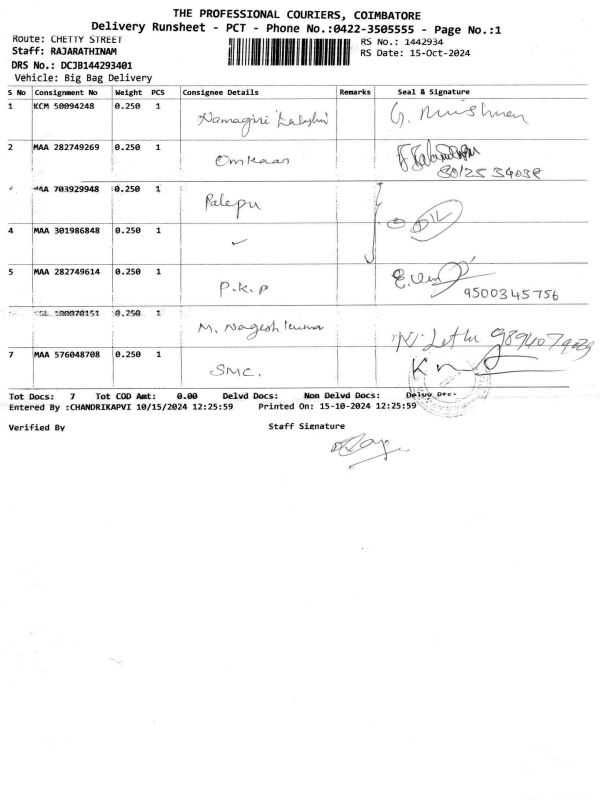 THE PROFESSIONAL COURIERS, COIMBATORE
Delivery Runsheet - PCT - Phone No.:0422-3505555 - Page No.:1
Route: CHETTY STREET
RS No.: 1442934
Staff: RAJARATHINAM
RS Date: 15-Oct-2024
DRS No.: DCJB144293401
Vehicle: Big Bag Delivery
S No Consignment No Weight PCS Consignee Details Remarks Seal & Signature
1 KCM 50094248 0.250 1
Namagiri Lakshmi
2 MAA 282749269 0.250 1
Omkaar
80125 34038
MAA 703929948 0.250 1
Palepu
4 MAA 301986848 0.250 1
✓
5 MAA 282749614 0.250 1
P.K.P
9500345756
0.250 1
M. Nagesh kumar
7 MAA 576048708 0.250 1
SMC.
Tot Docs: 7 Tot COD Amt: 0.00 Delvd Docs: Non Delvd Docs:
Entered By :CHANDRIKAPVI 10/15/2024 12:25:59 Printed On: 15-10-2024 12:25:59
Verified By Staff Signature